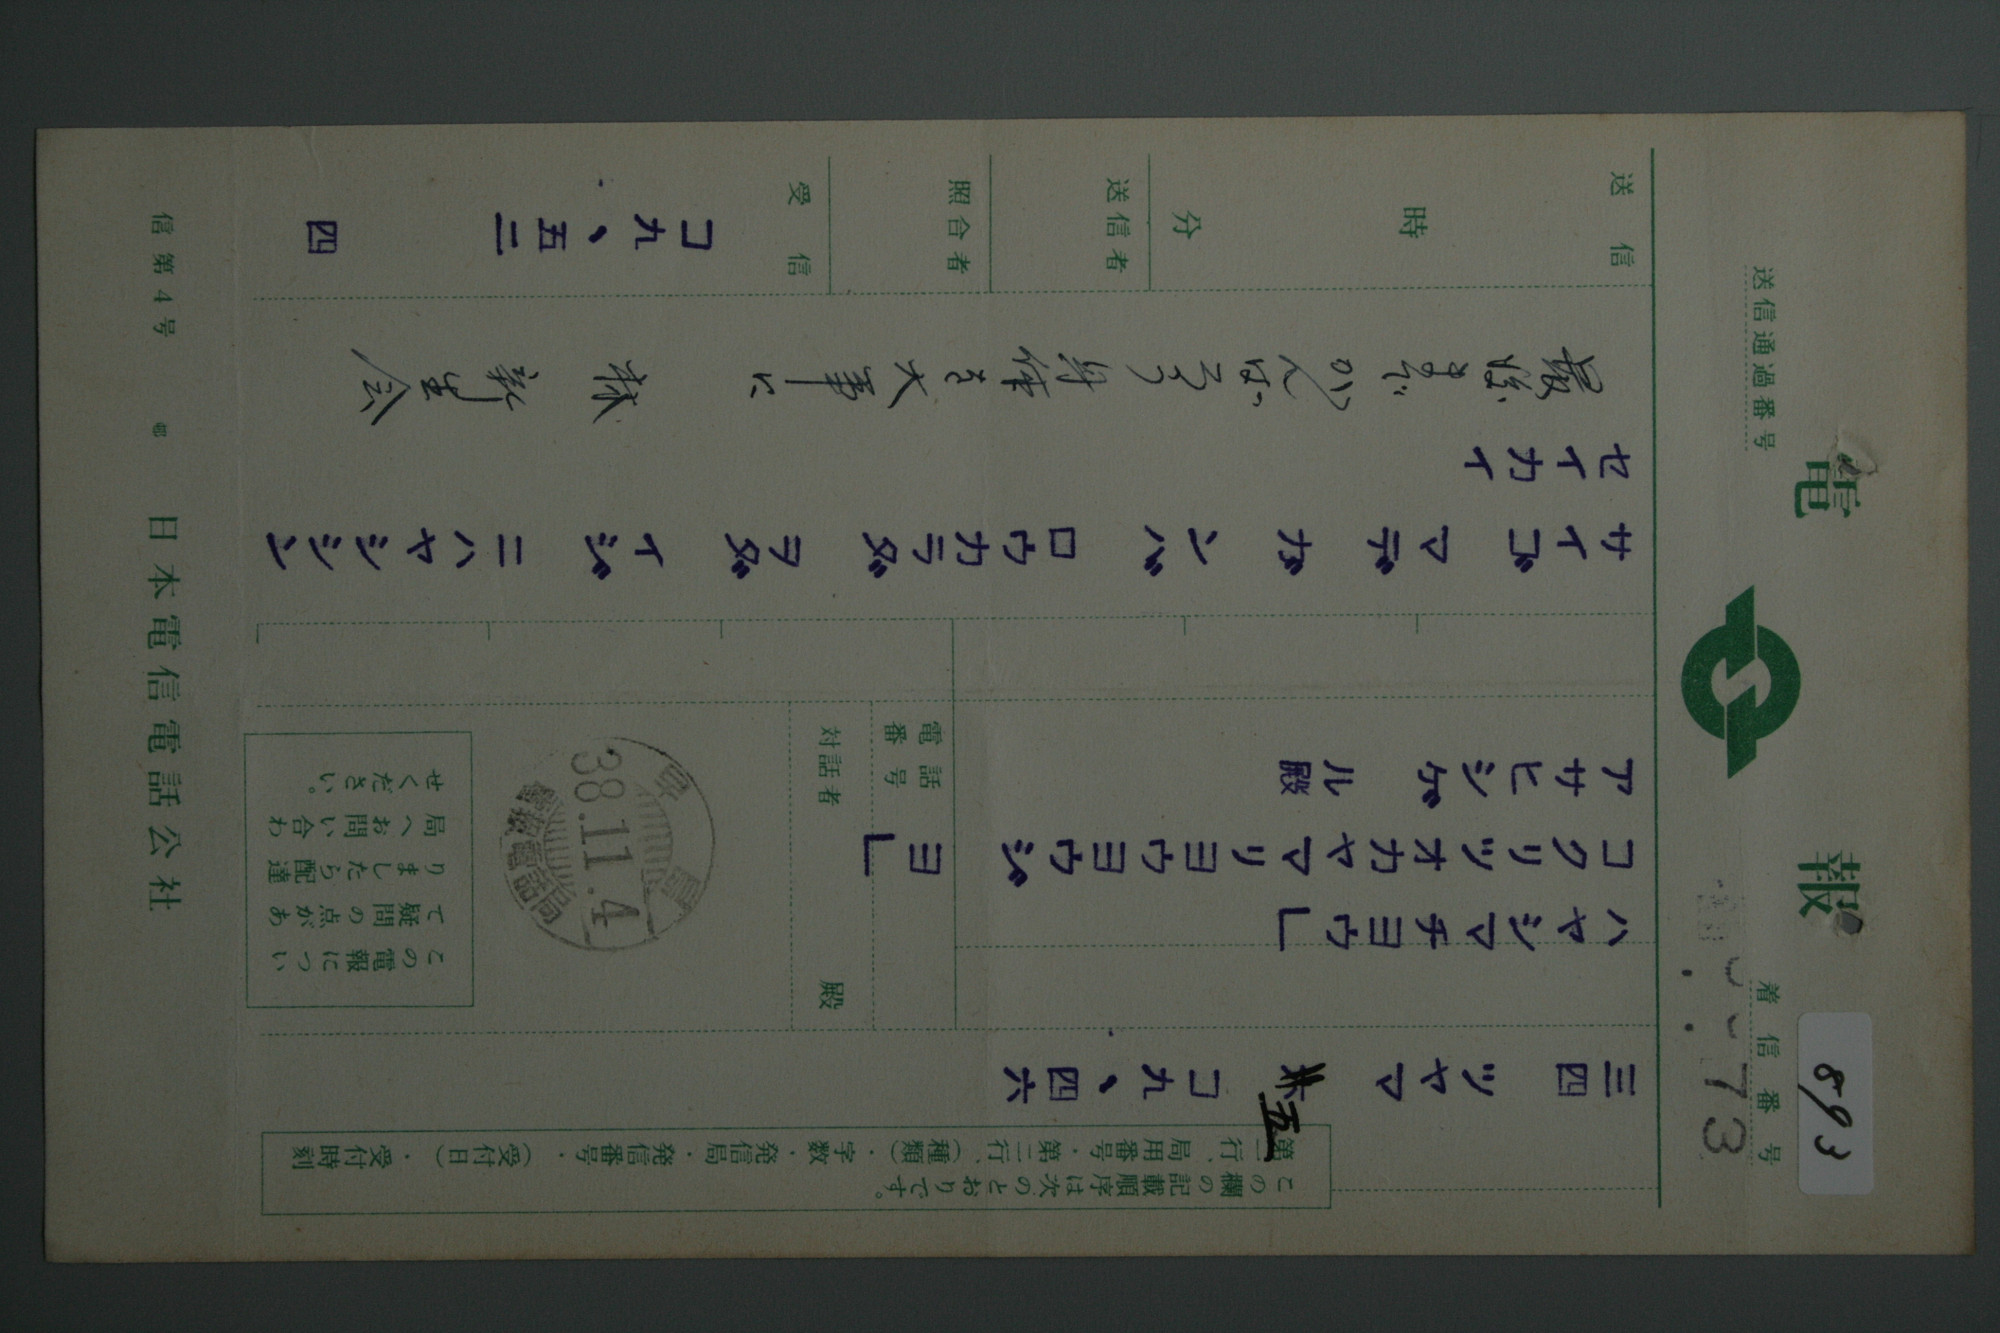 電報
送信通過番号
着信番号
893
73
この欄の記載順序は次のとおりです。
第一行、局用番号・第二行、(種類)・字数・発信局・発信番号・(受付日)・受付時刻
三四 ツヤマ 五 コ九、四六
ハヤシマチヨウ」
コクリツオカヤマリヨウヨウジヨ」
アサヒシゲル殿
電話番号
対話者 殿
38.11.4
この電報につい
て疑問の点があ
りましたら配達
局へお問い合わ
せください。
サイゴマデガンバロウカラダヲダイジニハヤシシン
セイカイ
最後までがんばろう身体を大事に 林 新生会
送信 時 分
送信者
照合者
受信
コ九、五二 四
信第4号
日本電信電話公社